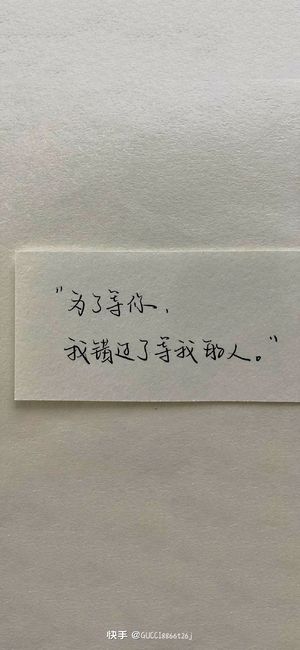 "为了等你，
我错过了等我的人。"
快手 @GUCCI8866t26j